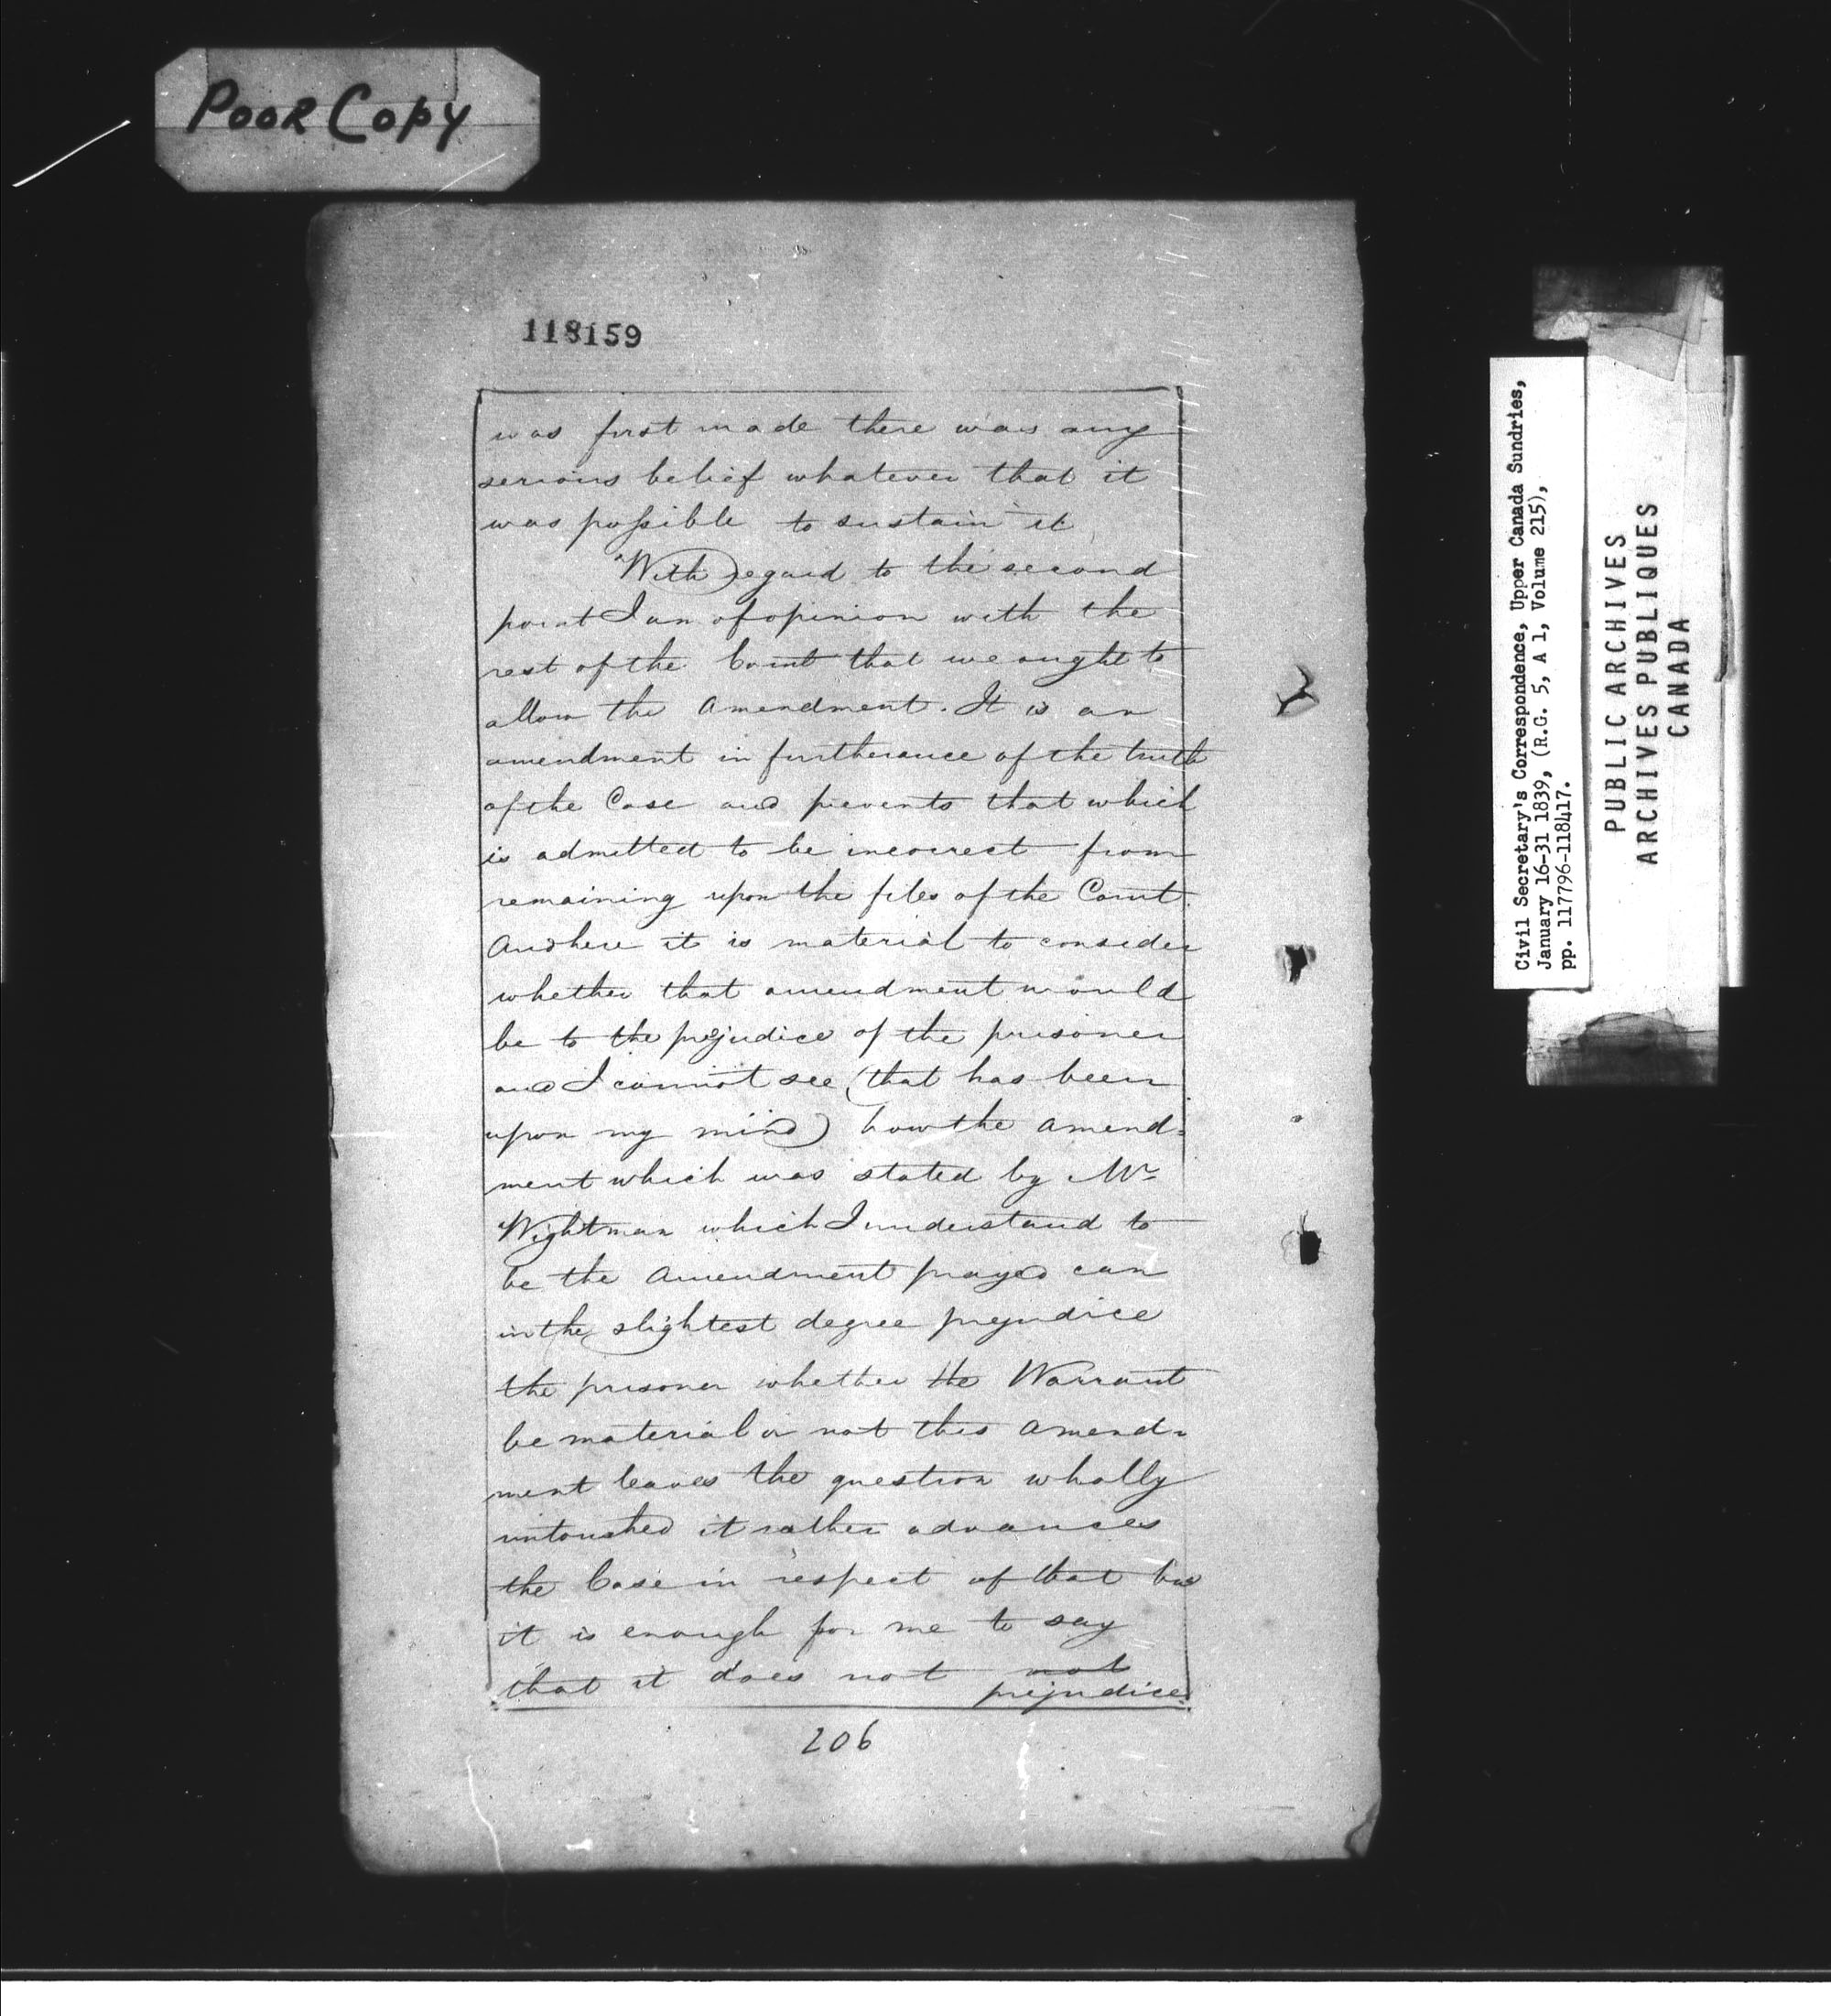 POOR COPY
118159
was first made there was any
serious belief whatever that it
was possible to sustain it
With regard to the second
point I am of opinion with the
rest of the Court that we ought to
allow the Amendment. It is an
amendment in furtherance of the truth
of the Case and prevents that which
is admitted to be incorrect from
remaining upon the files of the Court.
And here it is material to consider
whether that amendment would
be to the prejudice of the prisoner
and I cannot see (that has been
upon my mind) how the Amend=
ment which was stated by Mr
Wightman which I understand to
be the Amendment prayed can
in the slightest degree prejudice
the prisoner whether the Warrant
be material or not this Amend=
ment leaves the question wholly
untouched it rather advances
the Case in respect of that but
it is enough for me to say
that it does not not
prejudice
206
Civil Secretary's Correspondence, Upper Canada Sundries,
January 16-31 1839, (R.G. 5, A 1, Volume 215),
pp. 117796-118417.
PUBLIC ARCHIVES
ARCHIVES PUBLIQUES
CANADA